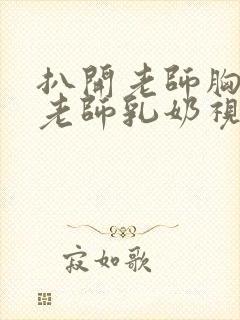 扒開老師胸
老師乳奶視
寂如歌